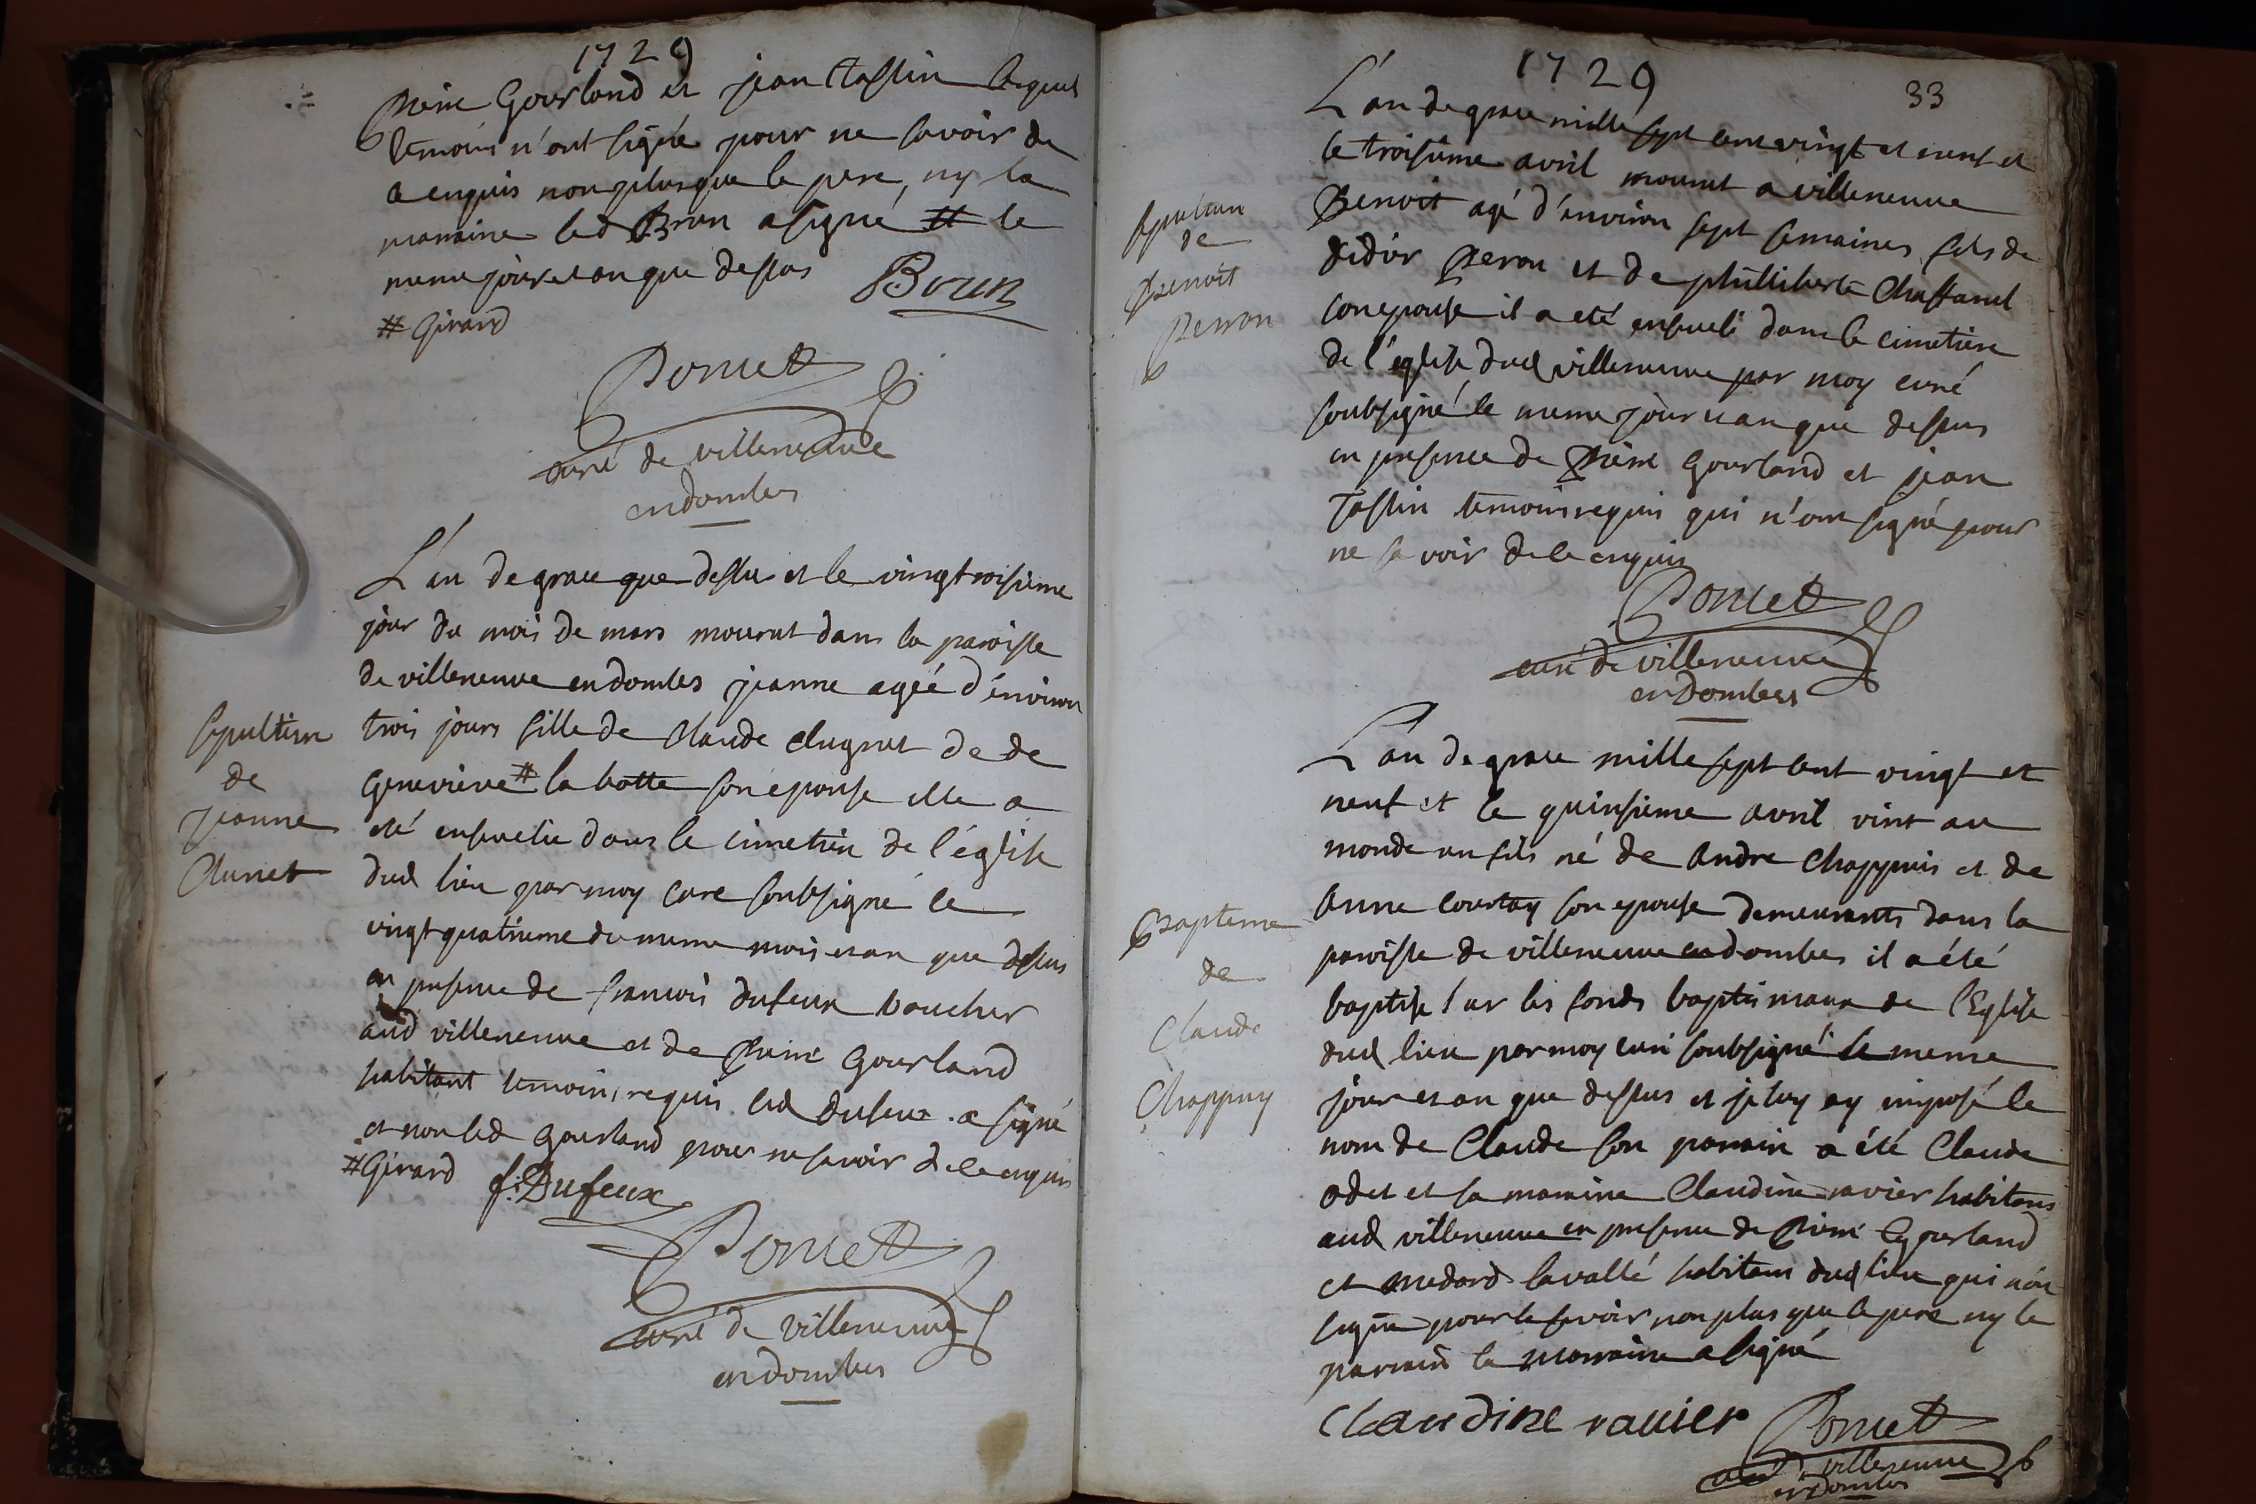 1729
pierre Gourland et jean tassin lesquels
temoins n'ont signé pour ne savoir de
ce enquis non plus que le pere, ny la
marraine led Brun a signé # le
meme jour et an que dessus
Brun
# Girard
Poncet
curé de villeneuve
en dombes
L'an de grace que dessus et le vingt troisieme
jour du mois de mars mourut dans la paroisse
de villeneuve en dombes jeanne agée d'environ
trois jours fille de Claude Clugnet de de
Genevieve # la batte son epouse elle a
eté ensevelie dans le cimetiere de l'église
dud lieu par moy curé soubsigné le
vingt quatrieme du meme mois et an que dessus
en presence de francois dufeux boucher
aud villeneuve et de pierre Gourland
habitant temoins requis led dufeux a signé
et non led Gourland pour ne savoir de ce enquis
# Girard f. Dufeux
Poncet
curé de villeneuve
en dombes
sepulture
de
jeanne
Clunet
1729
33
L'an de grace mille sept cent vingt et neuf et
le troisieme avril mourut a villeneuve
Benoit agé d'environ sept semaines fils de
didier Perron et de philliberte Chaffanel
son epouse il a eté enseveli dans le cimetiere
de l'église dud villeneuve par moy curé
soubsigné le meme jour et an que dessus
en presence de pierre Gourland et jean
Tassin temoins requis qui n'ont signé pour
ne savoir de ce enquis
Poncet
curé de villeneuve
en Dombes
sepulture
de
Benoit
Perron
L'an de grace mille sept cent vingt et
neuf et le quinsieme avril vint au
monde un fils né de andre Chappuis et de
anne courtay son epouse demeurants dans la
paroisse de villeneuve en dombes il a été
baptisé sur les fonds baptismaux de l'Eglise
dud lieu par moy curé soubsigné le meme
jour et an que dessus et je luy ay imposé le
nom de Claude son parrain a été Claude
odet et sa marraine Claudine ravier habitans
aud villeneuve en presence de Pierre Gourland
et medard lavallé habitans dud lieu qui n'on
signé pour le savoir non plus que le pere ny le
parrain la marraine a signé
Claudine ravier
Poncet
curé de villeneuve
en dombes
Bapteme
de
Claude
Chappuy